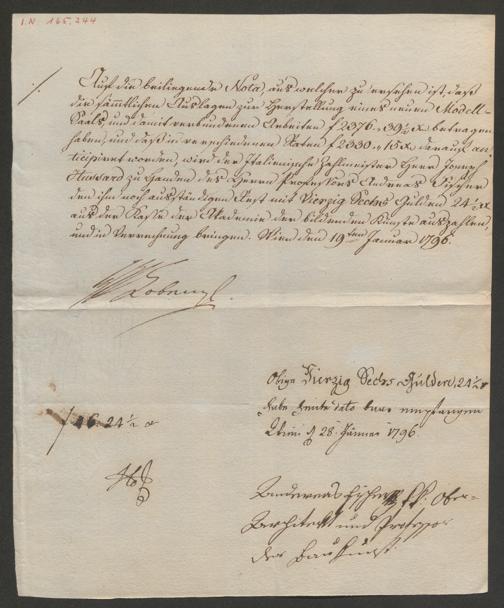 I.N. 165.244
Auf die beiliegende Nota, aus welcher zu ersehen ist, daß
die sämmtlichen Auslagen zur Herstellung eines neuen Modell-
Saals, und damit verbundenen Arbeiten f 2376. 39½ x betragen
haben, und daß in verschiedenen Raten f 2330. 15 x darauf an-
ticipirt worden, wird der Italienische Zahlmeister Herr Joseph
Hussard zu Handen des Herrn Professors Andreas Fischer
den ihm noch ausständigen Rest mit Vierzig Sechs Gulden 24½ x
aus der Kasse der Akademie der bildenden Künste auszahlen,
und in Verrechnung bringen. Wien den 19ten Januar 1796.
Cobenzl.
Obige Vierzig Sechs Gulden, 24½ x
habe heute dato baar empfangen
Wien d 28 Jänner 1796.
/ 46. 24½ x
Andreas Fischer k.k. Ober-
Architekt und Professor
der Baukunst.